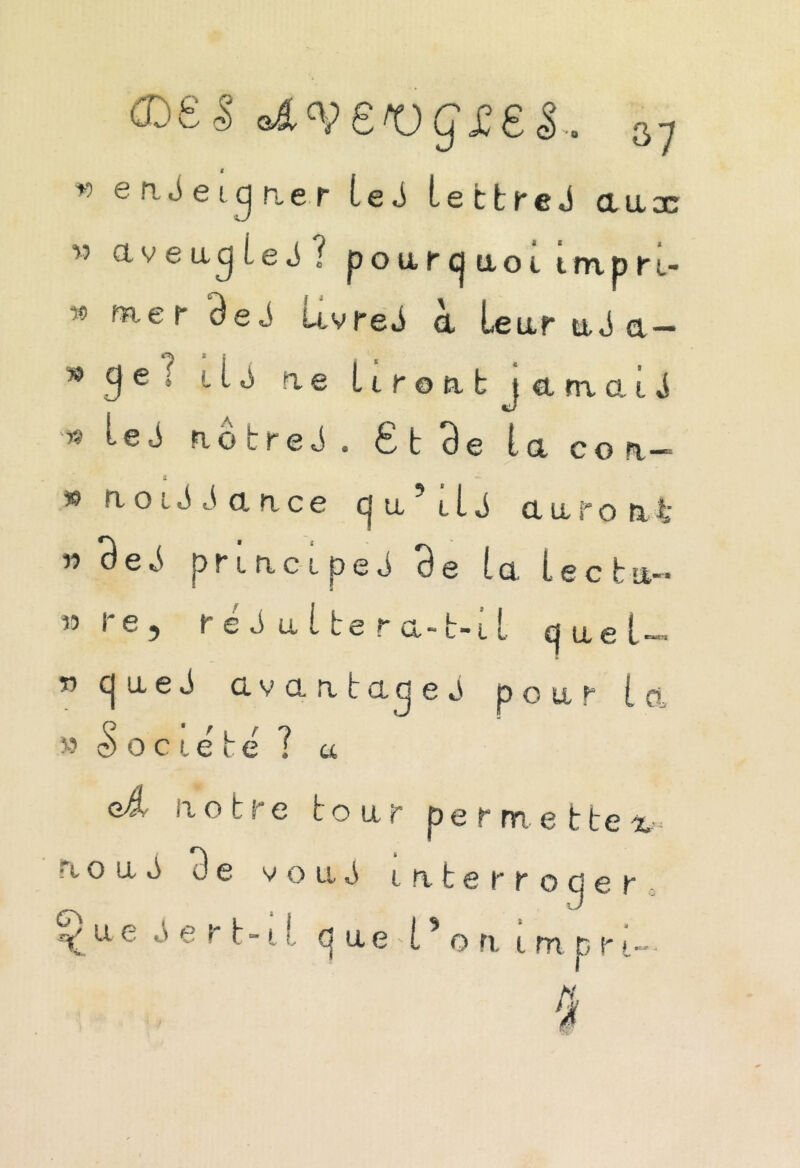 DES AVEUGLES. 37
» enseigner les lettres aux
» aveugles? pourquoi impri-
» mer des livres à leur usa-
» ge? ils ne liront jamais
» les nôtres. Et de la con-
» noissance qu’ils auront
» des principes de la lectu-
» re, résultera-t-il quel-
» ques avantages pour la
» Société? «
A notre tour permettez-
nous de vous interroger.
Que sert-il que l’on impri-